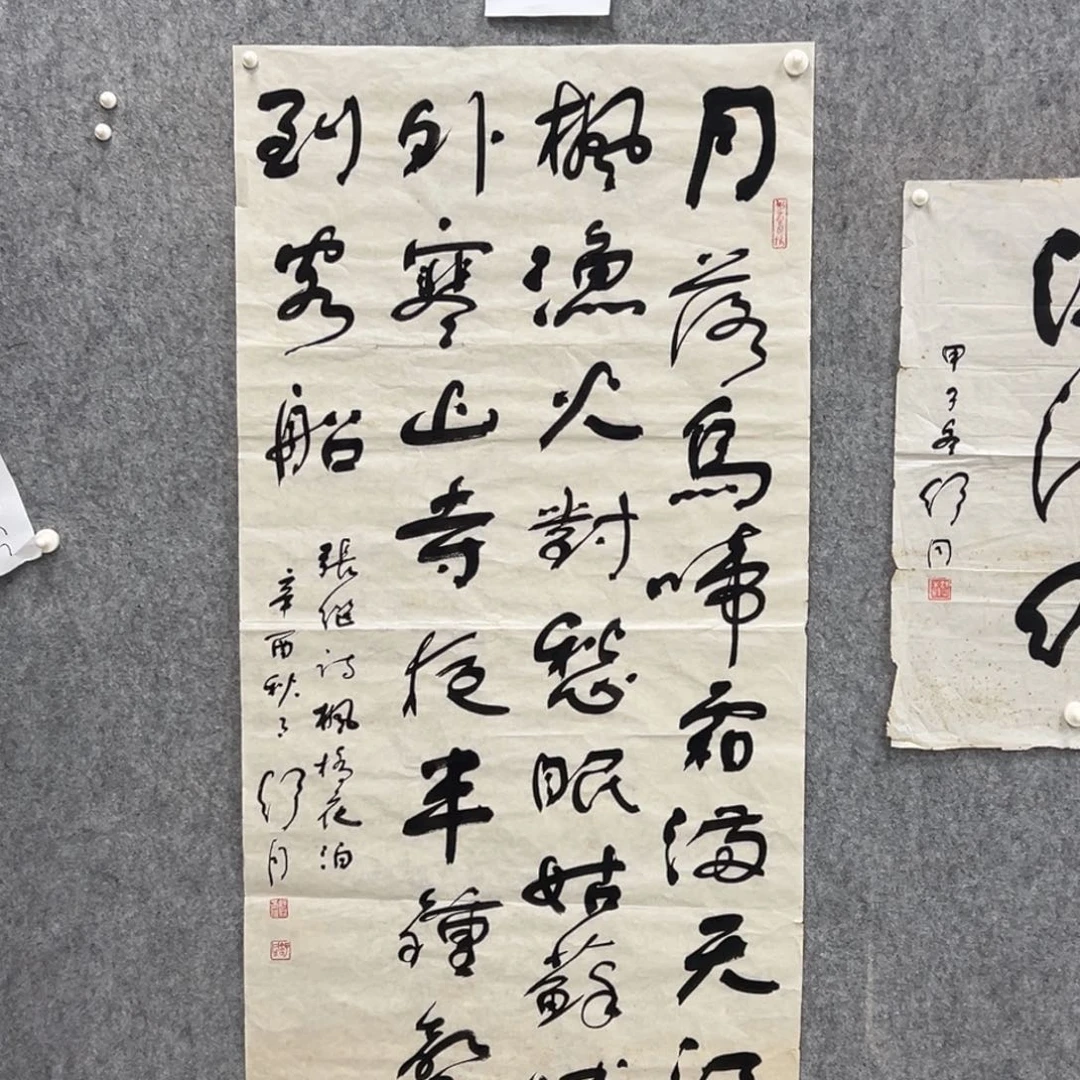 月落烏啼霜滿天江
楓漁火對愁眠姑蘇城
外寒山寺夜半鍾聲
到客船
張継詩楓橋夜泊
辛酉秋 舒同
甲子冬舒同